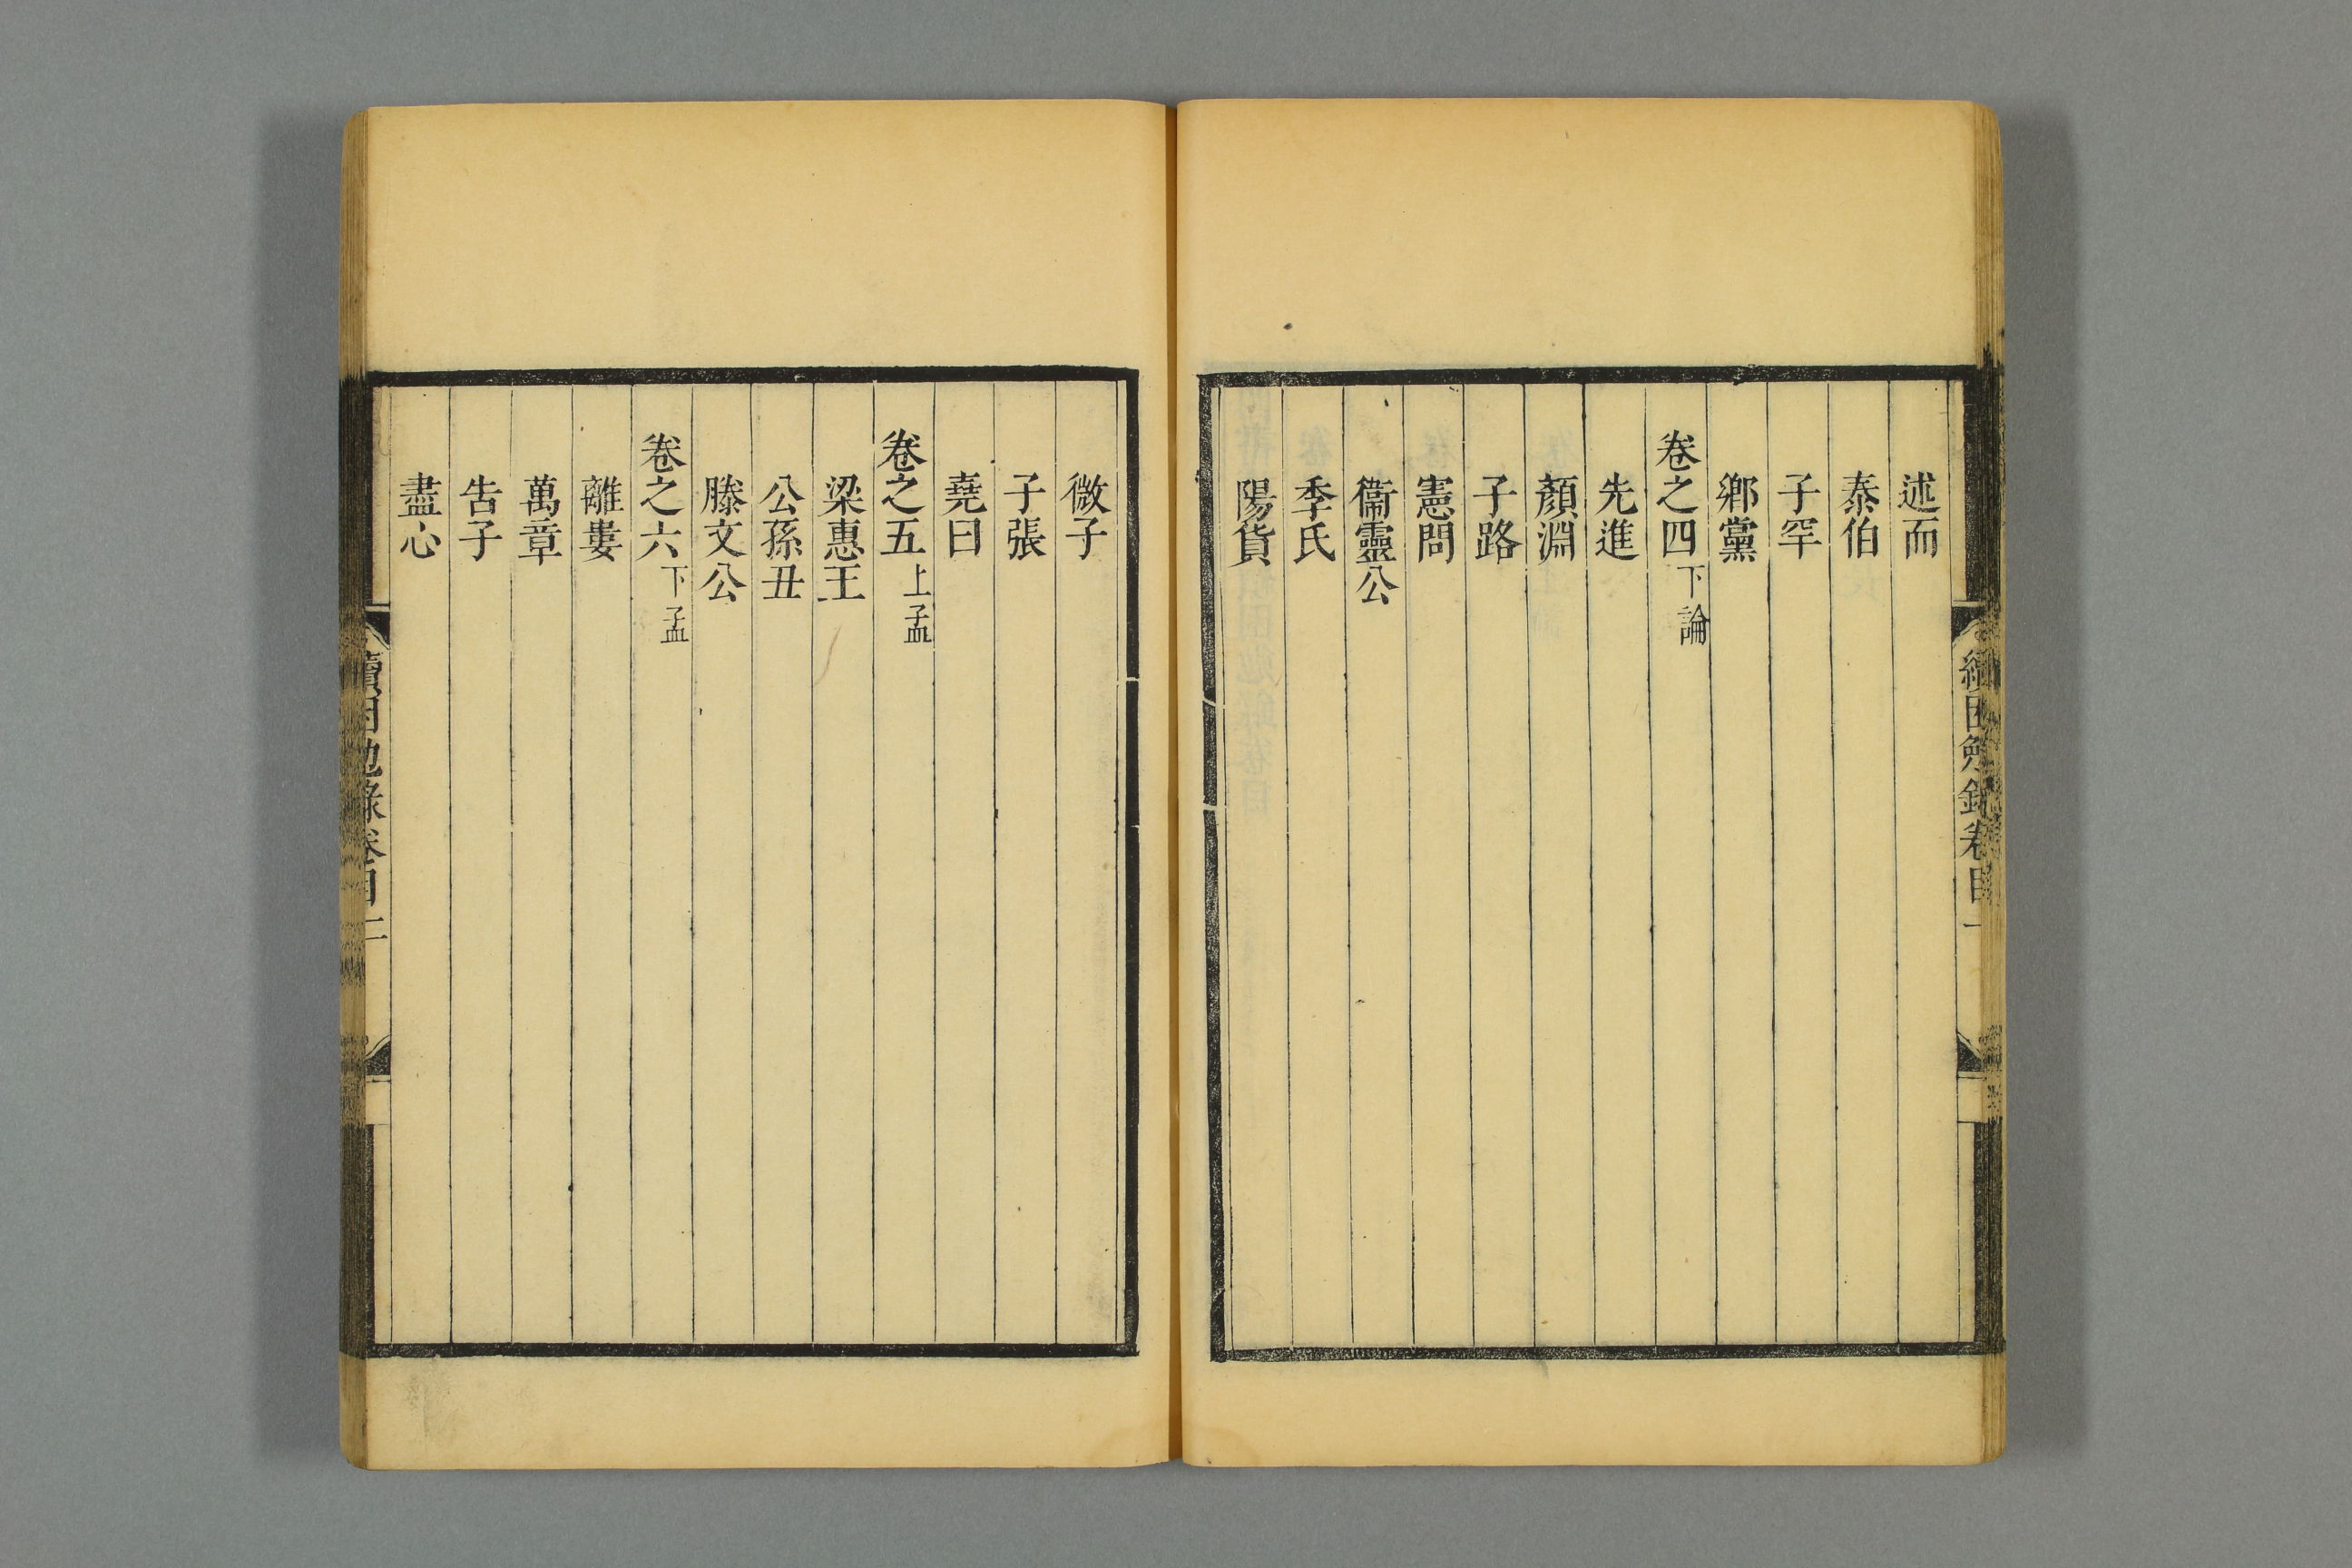 述而
泰伯
子罕
鄉黨
卷之四下論
先進
顏淵
子路
憲問
衞靈公
季氏
陽貨
續困勉錄卷目一
微子
子張
堯曰
卷之五上孟
梁惠王
公孫丑
滕文公
卷之六下孟
離婁
萬章
告子
盡心
續困勉錄卷目二